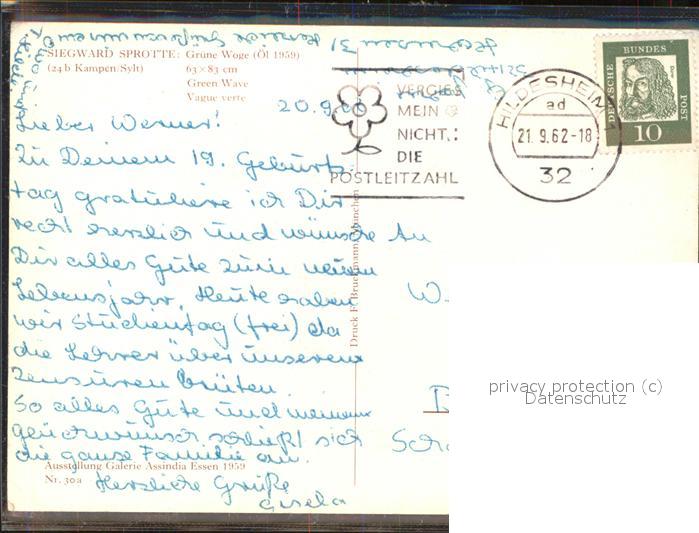 SIEGWARD SPROTTE: Grüne Woge (Öl 1959)
(24b Kampen/Sylt) 63×83 cm
Green Wave
Vague verte
20.9.
Lieber Werner!
Zu Deinem 19. Geburts-
tag gratuliere ich Dir
recht herzlich und wünsche
Dir alles Gute zum neuen
Lebensjahr. Heute haben
wir Studientag (frei) da
die Lehrer über unseren
Zensuren brüten.
So alles Gute und meinem
Glückwunsch schließt sich
die ganze Familie an.
Herzliche Grüße
Gisela
Ausstellung Galerie Assindia Essen 1959
Nr. 30a
Druck F. Bruckmann, München
VERGISS
MEIN
NICHT:
DIE
POSTLEITZAHL
HILDESHEIM 1
ad
21.9.62-18
32
DEUTSCHE BUNDESPOST
10
An
W
B
Sch
privacy protection (c)
Datenschutz